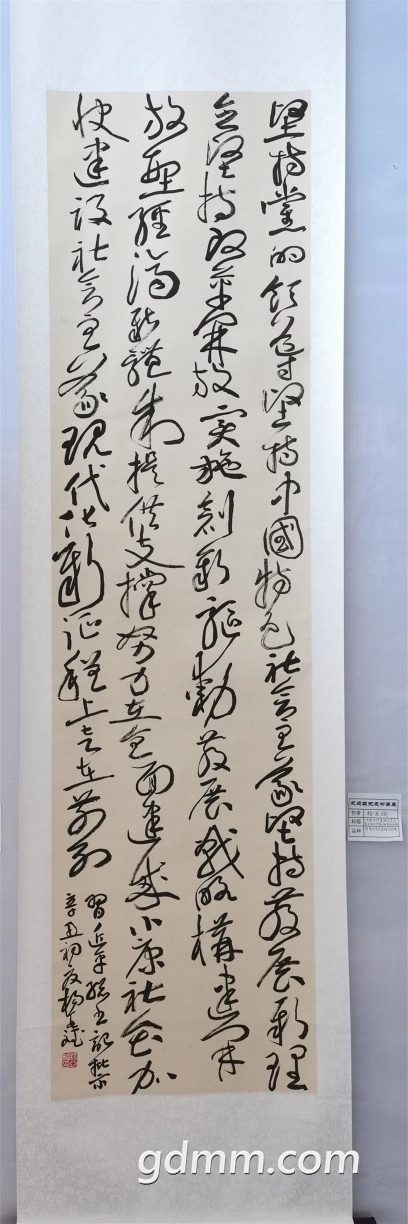 坚持党的领导坚持中国特色社会主义坚持发展新理
念坚持改革开放实施创新驱动发展战略構建开
放型经济新體制提供支撑努力在全面建成小康社会加
快建设社会主义现代化新征程上走在前列
習近平總书記批示
辛丑初夏楊
gdmm.com
作者
标题
品种